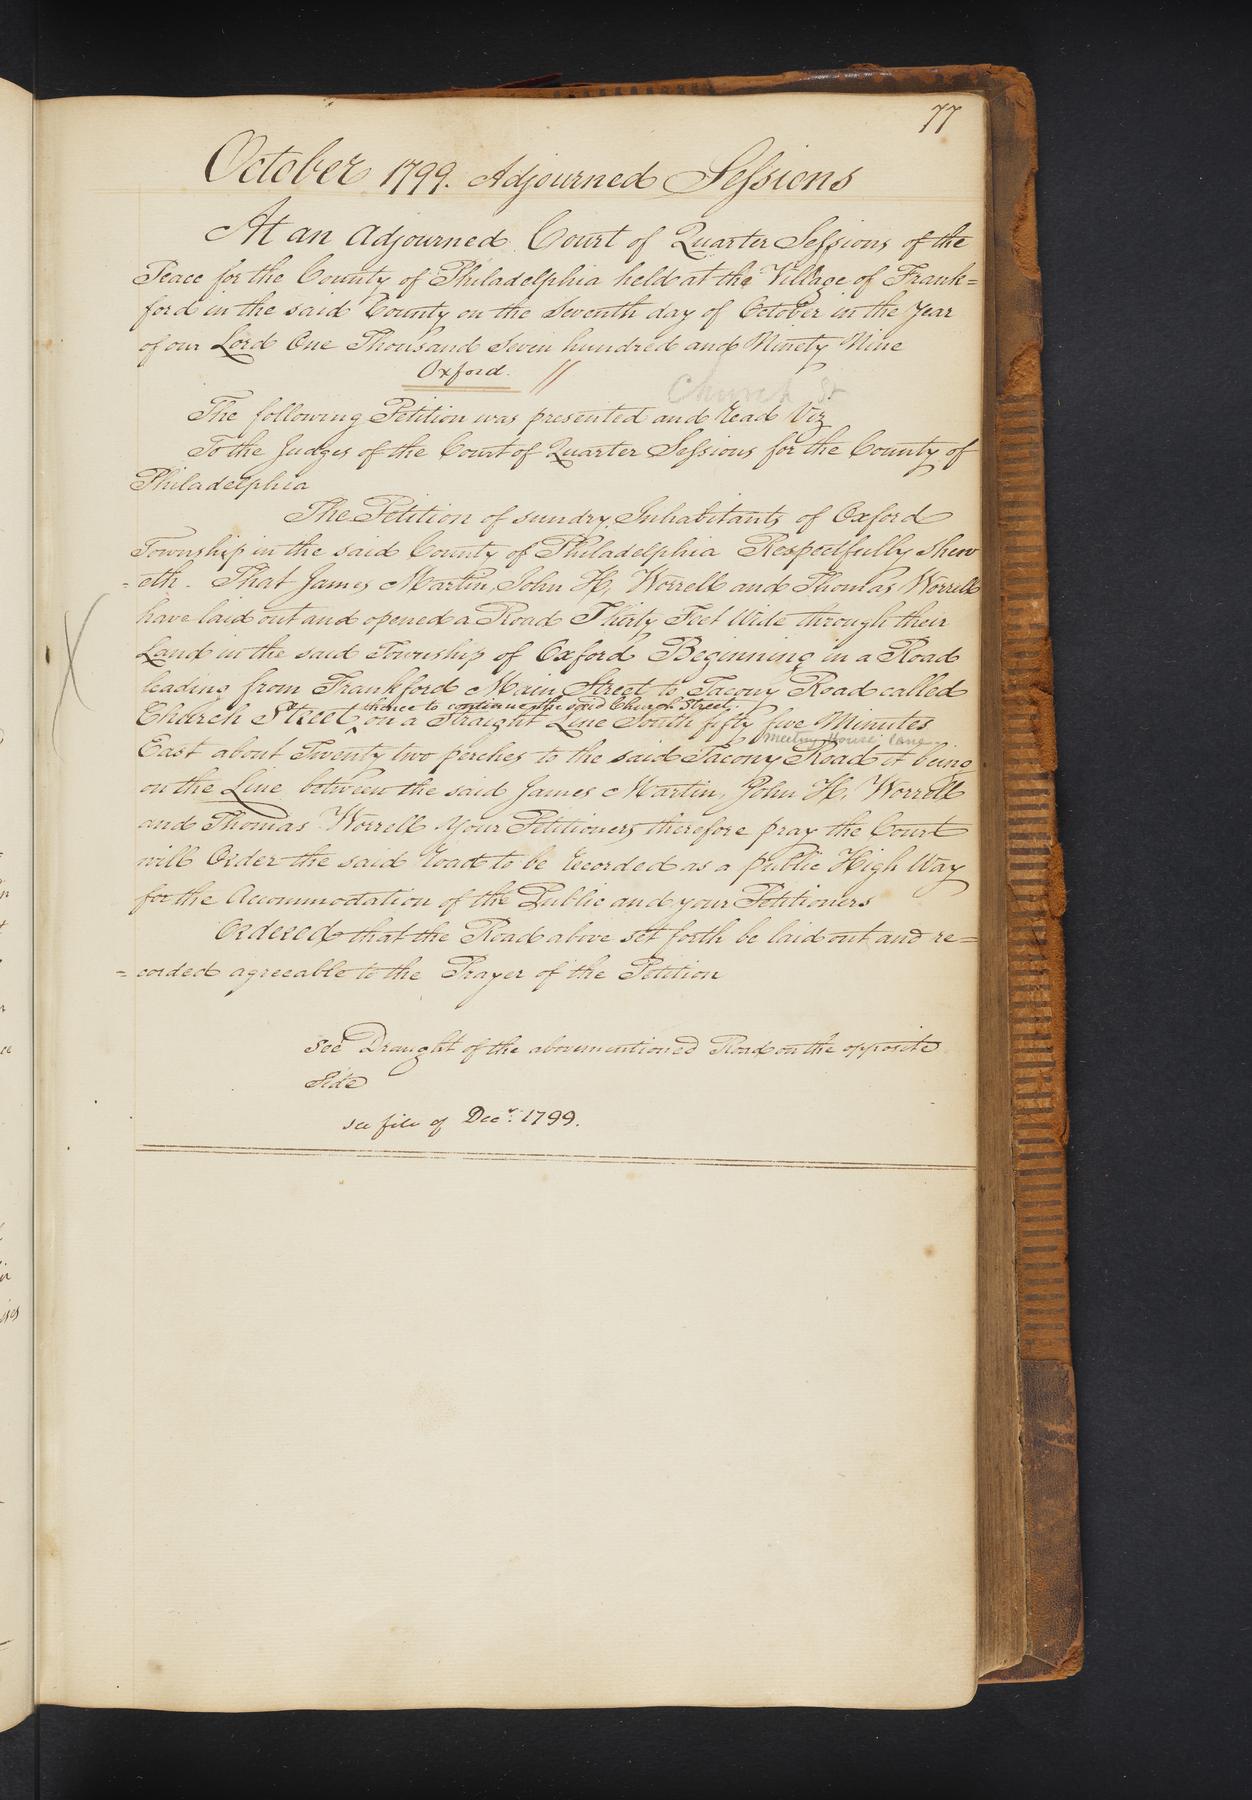 77
October 1799. Adjourned Sessions
At an Adjourned Court of Quarter Sessions of the
Peace for the County of Philadelphia held at the Village of Frank=
ford in the said County on the Seventh day of October in the Year
of our Lord One Thousand Seven hundred and Ninety Nine
Oxford. //
Church St
The following Petition was presented and read Viz
To the Judges of the Court of Quarter Sessions for the County of
Philadelphia
The Petition of sundry Inhabitants of Oxford
Township in the said County of Philadelphia Respectfully Shew
=eth. That James Martin, John H, Worrell and Thomas Worrell
have laid out and opened a Road Thirty Feet Wide through their
Land in the said Township of Oxford Beginning in a Road
leading from Frankford Main Street to Tacony Road called
thence to continue the said Church Street
Church Street ‸ on a Straight Line South fifty five Minutes
meeting House lane
East about Twenty two perches to the said Tacony Road it being
on the Line between the said James Martin, John H, Worrell
and Thomas Worrell Your Petitioners therefore pray the Court
will Order the said Road to be Recorded as a public High Way
for the Accommodation of the Public and your Petitioners
Ordered that the Road above set forth be laid out and re=
=corded agreeable to the Prayer of the Petition
See Draught of the abovementioned Road on the opposite
Side
see file of Decr. 1799.